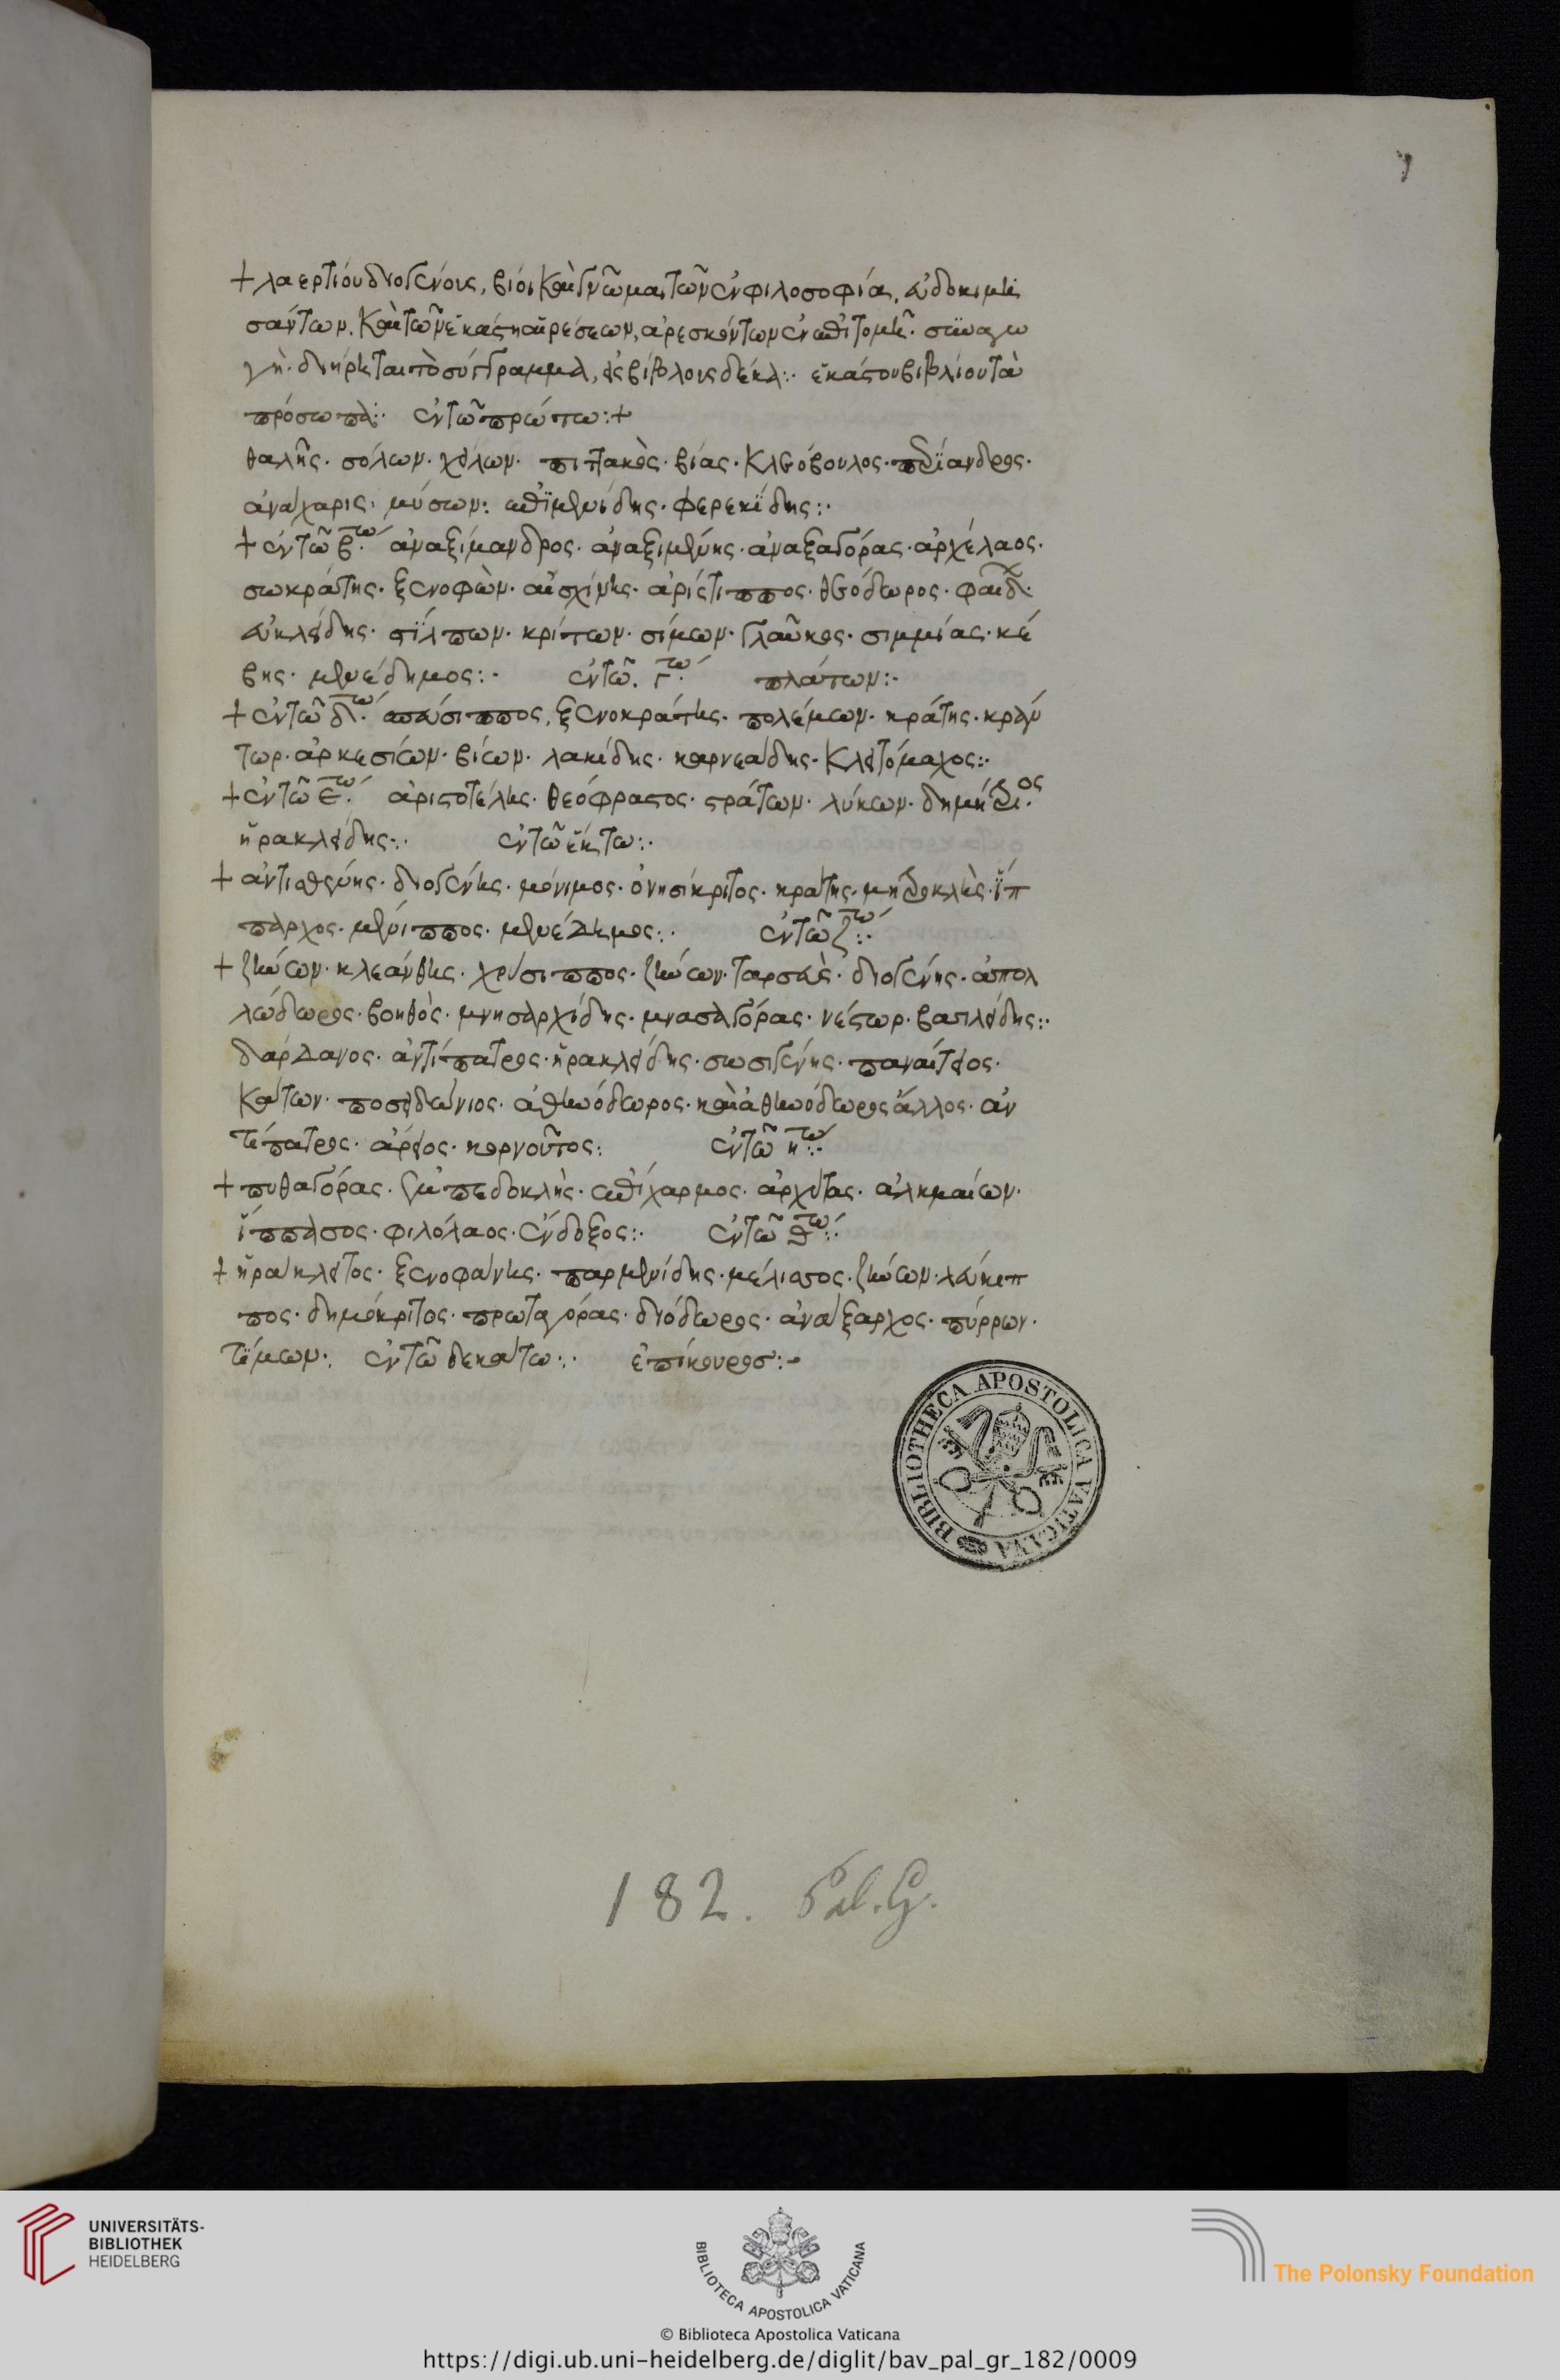 + λαερτίου διογένους, βίοι καὶ γνῶμαι τῶν ἐν φιλοσοφία, εὐδοκιμη
σάντων. καὶ τῶν ἑκάστη αἱρέσεων, ἀρεσκόντων ἐν ἐπιτομῆ. συναγω
γὴ. διήρηται τὸ σύγγραμμα, εἰς βίβλους δέκα:· ἑκάστου βιβλίου τὰ
πρόσωπα:· ἐν τῶ πρώτω:+
θαλῆς. σόλων. χείλων. πιττακὸς. βίας. κλεόβουλος. περίανδρος.
ἀνάχαρις. μύσων. ἐπιμενίδης. φερεκύδης:·
+ ἐν τῶ β.τω ἀναξίμανδρος. ἀναξιμένης. ἀναξαγόρας. ἀρχέλαος.
σωκράτης. ξενοφῶν. αἰσχίνης. ἀρίστιππος. θεόδωρος. φαίδ.
εὐκλείδης. στίλπων. κρίτων. σίμων. γλαῦκος. σιμμίας. κέ
βης. μενέδημος:· ἐν τῶ. γ.τω πλάτων:·
+ ἐν τῶ δ.τω σπεύσιππος, ξενοκράτης. πολέμων. κράτης. κράν
τωρ. ἀρκεσίων. βίων. λακίδης. καρνεάδης. κλειτόμαχος:·
+ ἐν τῶ ε.τω ἀριστοτέλης. θεόφραστος. στράτων. λύκων. δημήτρι.ος
ἡρακλείδης:· ἐν τῶ ἕκτω:·
+ ἀντισθένης. διογένης. μόνιμος. ὀνησίκριτος. κράτης. μητροκλὴς. ἵπ
παρχος. μένιππος. μενέδημος:· ἐν τῶ ζ:·τω
+ ζήνων. κλεάνθης. χρύσιππος. ζήνων. ταρσεὺς. διογένης. ἀπολ
λώδωρος. βοηθὸς. μνησαρχίδης. μνασαγόρας. νέστωρ. βασιλείδης:·
δάρδανος. ἀντίπατρος. ἡρακλείδης. σωσιγένης. παναίτειος.
κάτων. ποσειδώνιος. ἀθηνόδωρος. καὶ ἀθηνόδωρος ἄλλος. ἀν
τίπατρος. ἄρειος. κορνοῦτος: ἐν τῶ η:·τω
+ πυθαγόρας. ἐμπεδοκλὴς. ἐπίχαρμος. ἀρχύτας. ἀλκμαίων.
ἵππασος. φιλόλαος. εὔδοξος:· ἐν τῶ θ:·τω
+ ἡράκλειτος. ξενοφάνης. παρμενίδης. μέλισσος. ζήνων. λεύκιπ
πος. δημόκριτος. πρωταγόρας. διόδωρος. ἀνάξαρχος. πύρρων.
τίμων:· ἐν τῶ δεκάτω:· ἐπίκουρος:·
BIBLIOTHECA APOSTOLICA VATICANA
182. Pal. G.
UNIVERSITÄTS-
BIBLIOTHEK
HEIDELBERG
BIBLIOTECA APOSTOLICA VATICANA
The Polonsky Foundation
© Biblioteca Apostolica Vaticana
https://digi.ub.uni-heidelberg.de/diglit/bav_pal_gr_182/0009